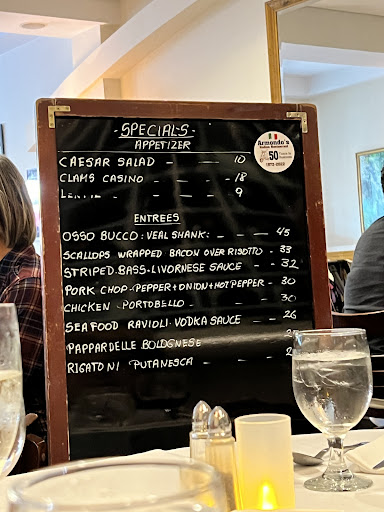 -SPECIALS-
APPETIZER
CAESAR SALAD - - - 10
CLAMS CASINO - - 18
- 9
ENTREES
OSSO BUCCO: VEAL SHANK: - - - 45
SCALLOPS WRAPPED BACON OVER RISOTTO - 33
STRIPED.BASS.LIVORNESE SAUCE - - 32
PORK CHOP.PEPPER+ONION+HOT PEPPER - 30
CHICKEN PORTOBELLO - - - 30
SEAFOOD RAVIOLI. VODKA SAUCE - - 26
PAPPARDELLE BOLOGNESE
RIGATONI PUTANESCA
Armondo's
Italian Restaurant
50
1972-2022